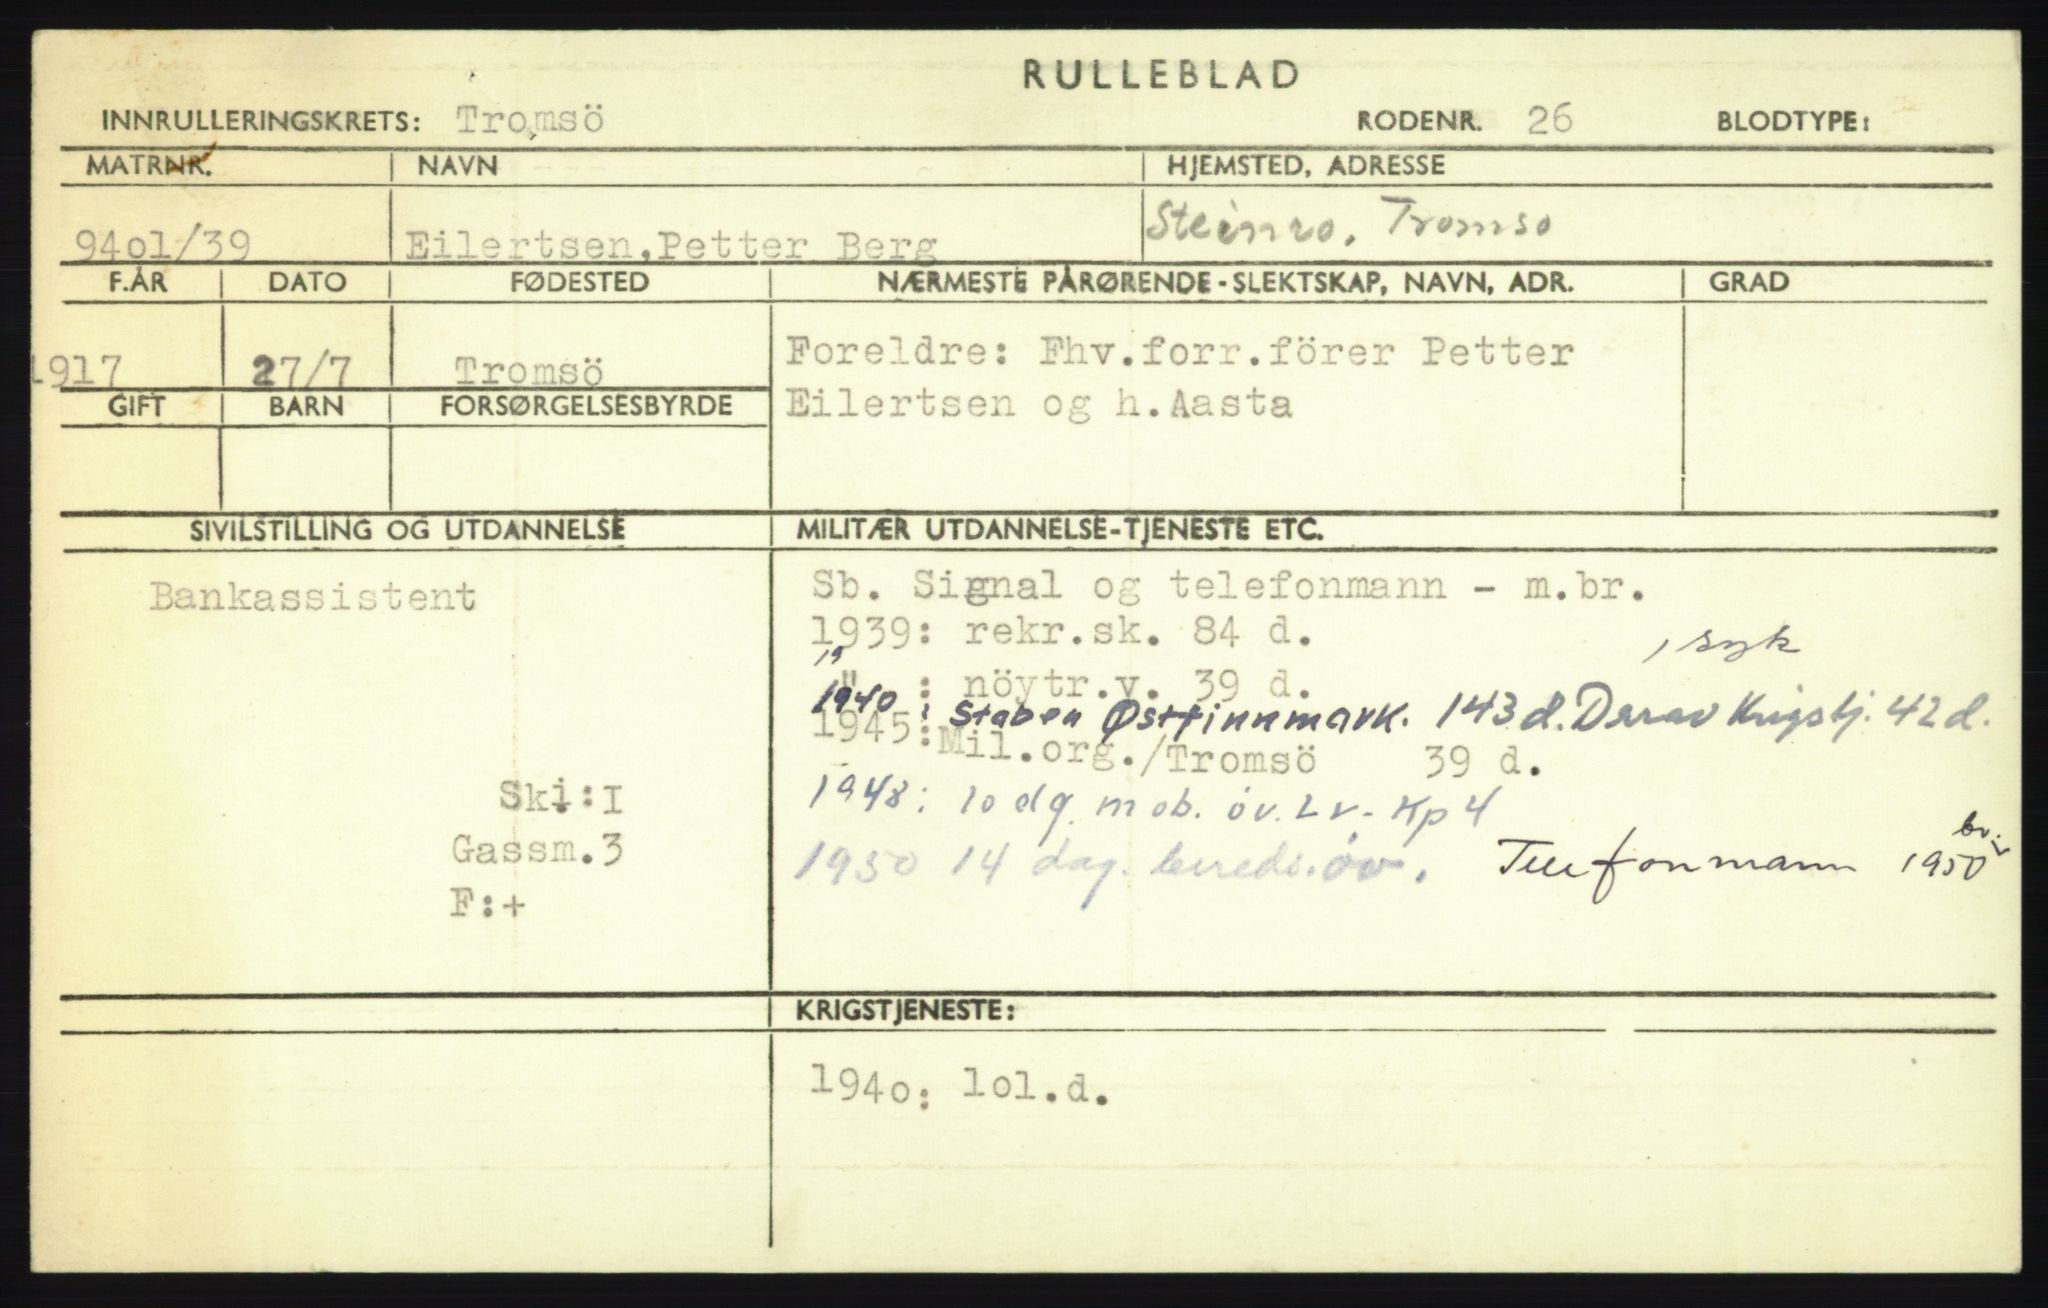 RULLEBLAD
INNRULLERINGSKRETS: Tromsö RODENR. 26 BLODTYPE:
MATRNR. NAVN HJEMSTED, ADRESSE
94ol/39 Eilertsen,Petter Berg Steinro, Tromsø
F.ÅR DATO FØDESTED NÆRMESTE PÅRØRENDE-SLEKTSKAP, NAVN, ADR. GRAD
1917 27/7 Tromsö Foreldre: Fhv.forr.förer Petter
GIFT BARN FORSØRGELSESBYRDE Eilertsen og h.Aasta
SIVILSTILLING OG UTDANNELSE MILITÆR UTDANNELSE-TJENESTE ETC.
Bankassistent Sb. Signal og telefonmann - m.br.
1939: rekr.sk. 84 d.
, syk
" : nöytr.v. 39 d.
1940: Staben Østfinnmark. 143 d. Derav Krigstj. 42 d.
1945: Mil.org./Tromsö 39 d.
Ski:I 1948: 10 dg. mob. öv. Lv. Kp 4
Gassm.3 1950 14 dag. bereds. öv. Telefonmann 1950
F:+
KRIGSTJENESTE:
194o: lol.d.